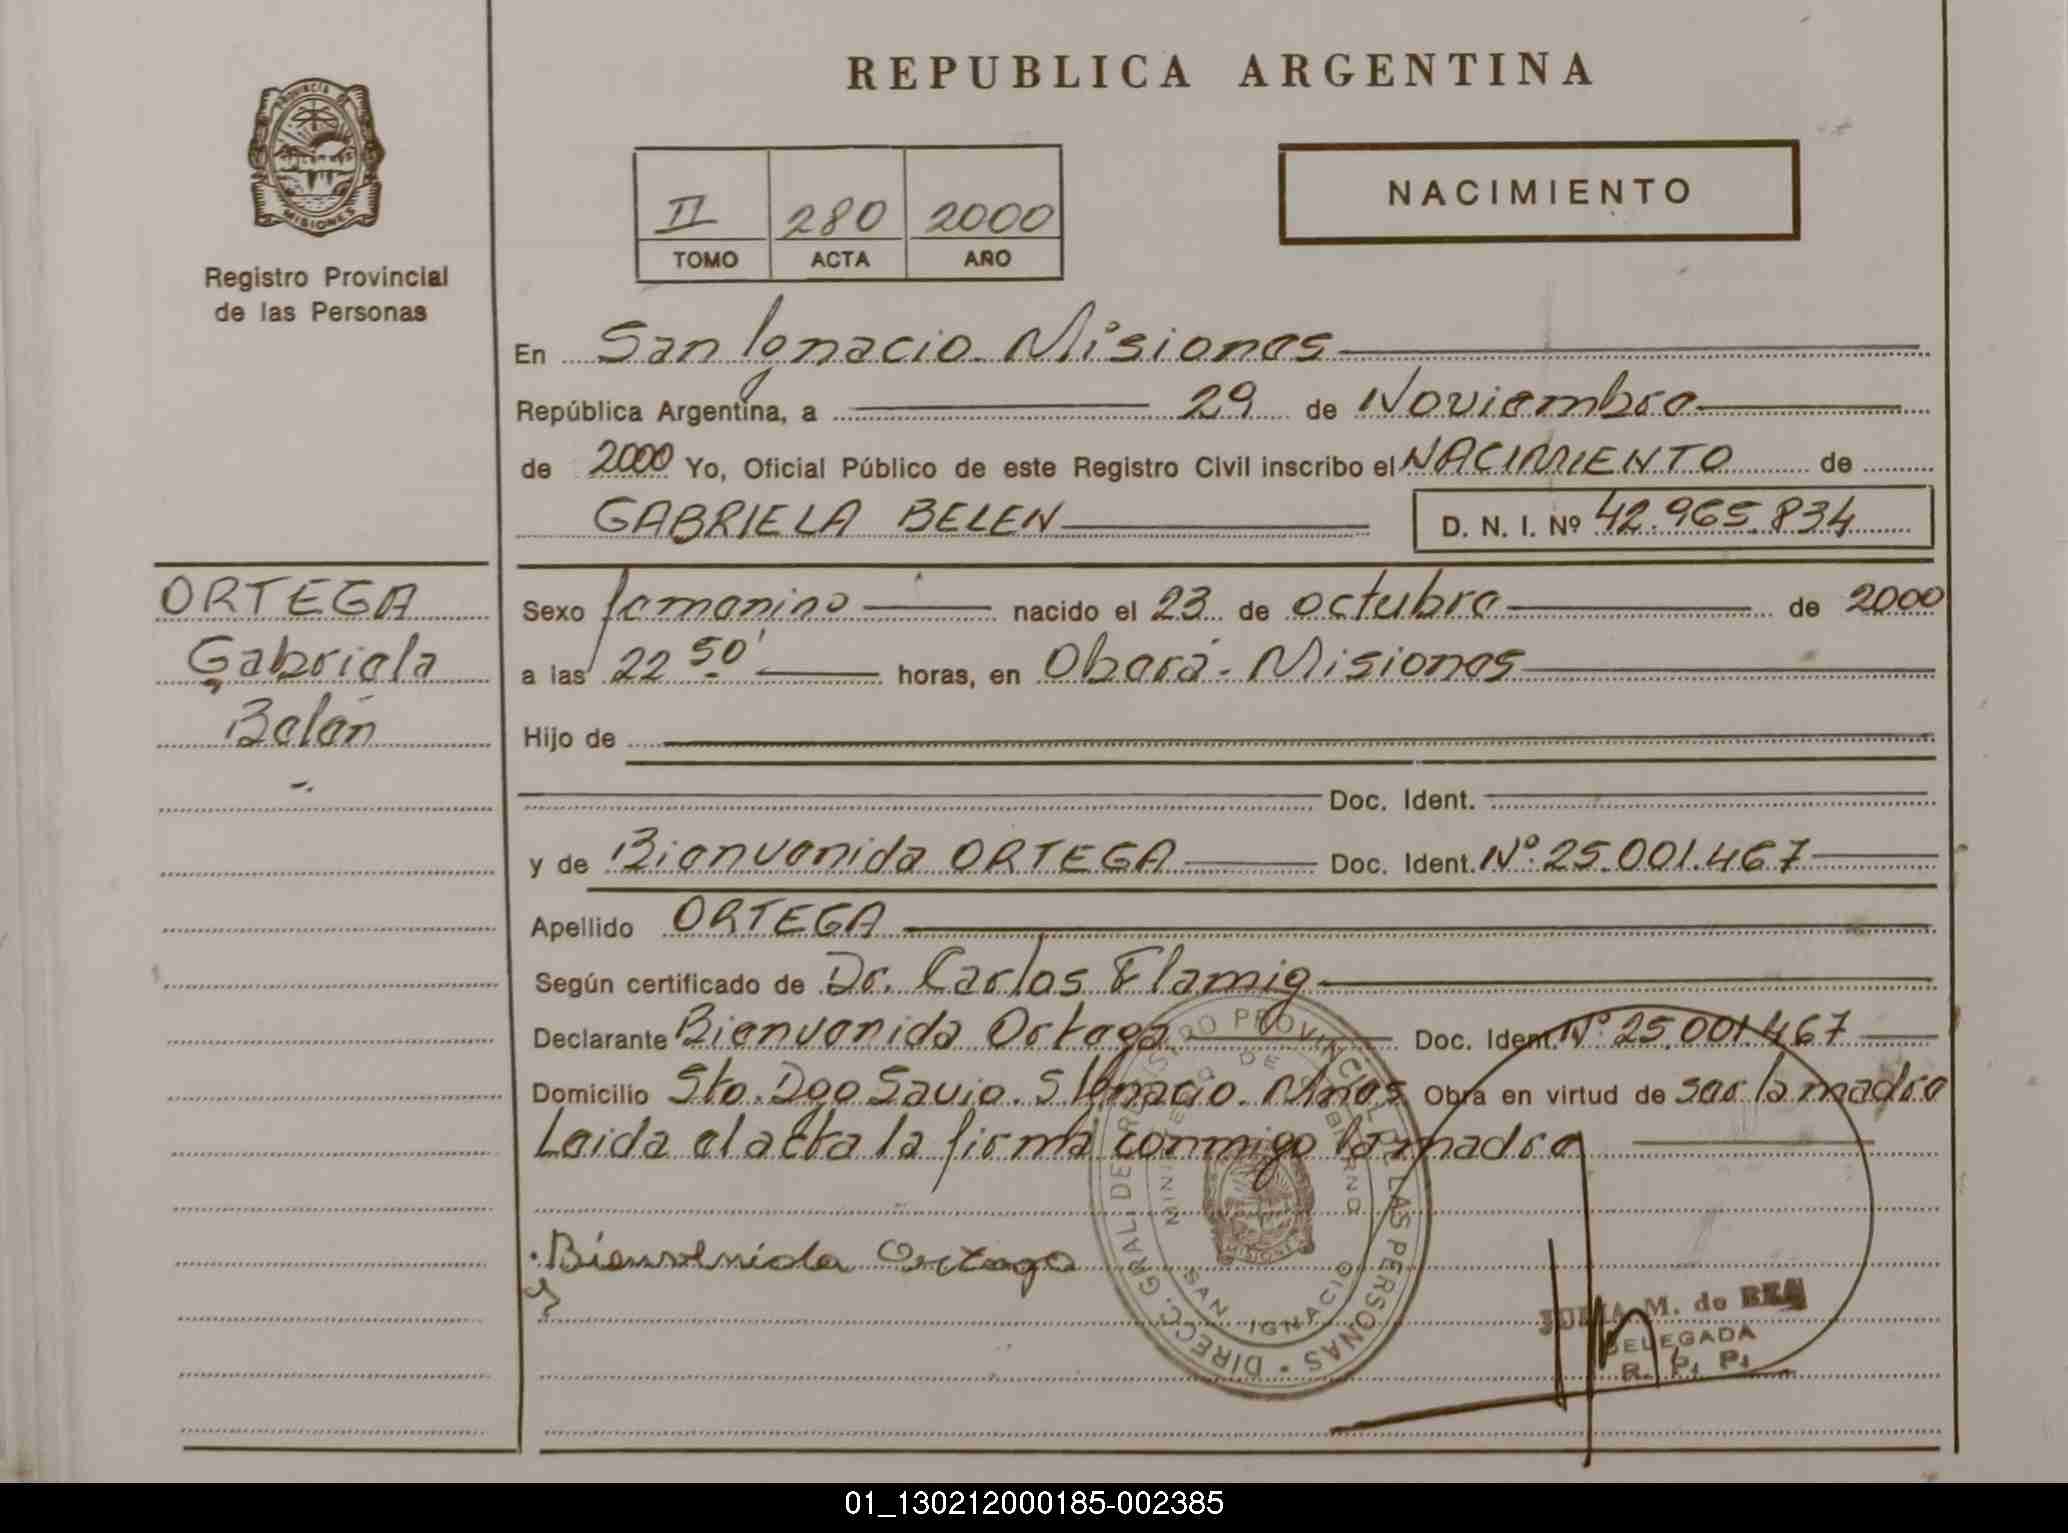 REPUBLICA ARGENTINA
PROVINCIA DE
MISIONES
Registro Provincial
de las Personas
II 280 2000
TOMO ACTA AÑO
NACIMIENTO
En San Ignacio. Misiones
República Argentina, a 29 de Noviembre
de 2000 Yo, Oficial Público de este Registro Civil inscribo el NACIMIENTO de
GABRIELA BELEN D. N. I. Nº 42.965.834
ORTEGA
Gabriela
Belén
Sexo femenino nacido el 23 de octubre de 2000
a las 22 50' horas, en Oberá - Misiones
Hijo de
Doc. Ident.
y de Bienvenida ORTEGA Doc. Ident. Nº: 25.001.467
Apellido ORTEGA
Según certificado de Dr. Carlos Flamig
Declarante Bienvenida Ortega Doc. Ident. Nº 25.001.467
Domicilio Sto. Dgo Savio. S Ignacio. Mnes Obra en virtud de ser la madre
Leida el acta la firma conmigo la madre
Bienvenida Ortega
DIRECC. GRAL. DE REGISTRO PROVINCIAL DE LAS PERSONAS
MINISTERIO DE GOBIERNO
MISIONES
SAN IGNACIO
JULIA M. de
DELEGADA
R. P. P.
01_130212000185-002385